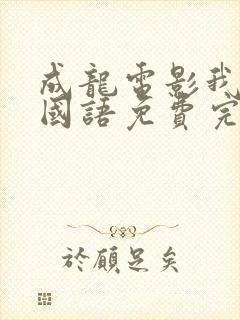 成龍電影我
國語免費完
於願足矣